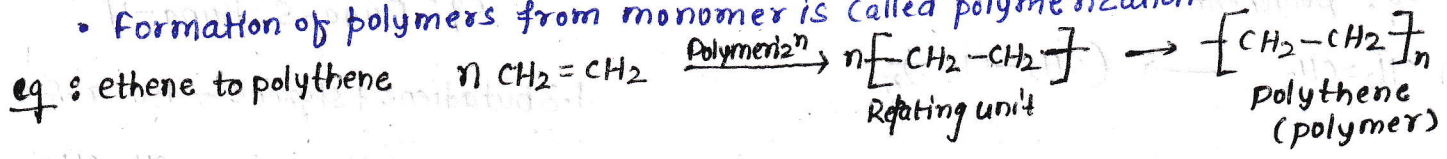 • Formation of polymers from monomer is called
eg : ethene to polythene n CH2 = CH2 Polymerizⁿ → n-[-CH2-CH2-]- → -[-CH2-CH2-]-n
Repating unit polythene
(polymer)